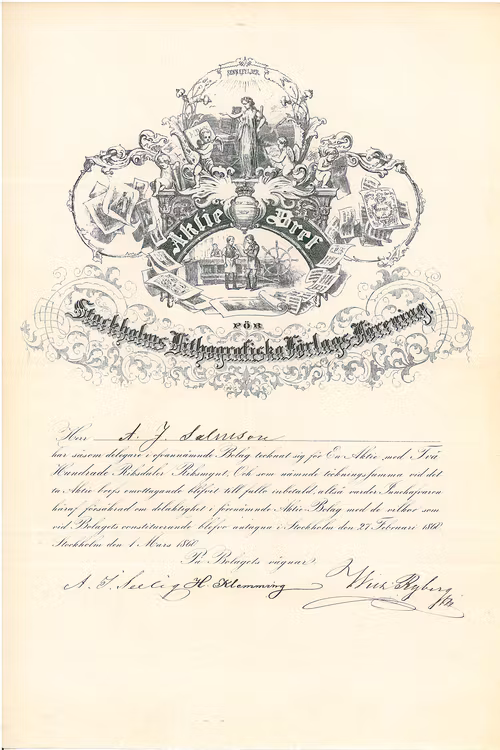 SENNEFELDER
Aktie Bref
FÖR
Stockholms Lithografiska Förlags-Förening
Herr A. J. Salmson
har såsom delägare i ofvannämnde Bolag tecknat sig för En Aktie med Två
Hundrade Riksdaler Riksmynt, Och som nämnde teckningssumma vid det
ta Aktie brefs emottagande blifvit till fullo inbetald, altså varder Innehafvaren
häraf försäkrad om delaktighet i förenämde Aktie Bolag med de vilkor som
vid Bolagets constituerande blefvo antagna i Stockholm den 27 Februari 1860.
Stockholm den 1 Mars 1860.
På Bolagets vägnar:
A. J. Seelig H. Klemming Wilh. Ryberg